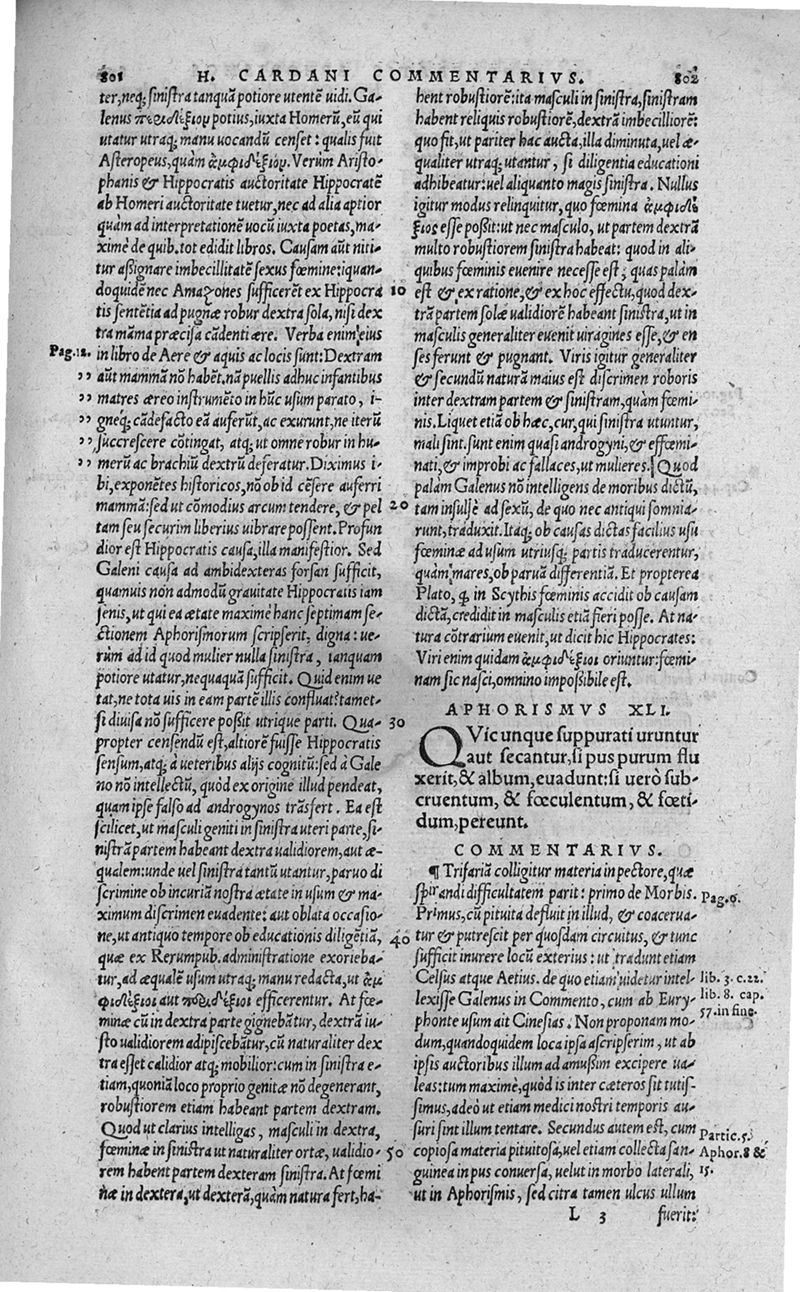 801 H. CARDANI COMMENTARIVS. 802
ter, neq; sinistra tanquã potiore utentẽ uidi. Ga-
lenus περιδέξιον potius, iuxta Homerũ, eũ qui
utatur utraq; manu uocandũ censet: qualis fuit
Asteropeus, quàm ἀμφιδέξιον. Verùm Aristo-
phanis & Hippocratis auctoritate Hippocratẽ
ab Homeri auctoritate tuetur, nec ad alia aptior
quàm ad interpretationẽ uocũ iuxta poetas, ma-
ximè de quib. tot edidit libros. Causam aũt niti-
tur assignare imbecillitatẽ sexus fœmine: quan-
doquidẽ nec Amazones sufficerẽt ex Hippocra
tis sentẽtia ad pugnæ robur dextra sola, nisi dex
tra mãma præcisa cãdenti ære. Verba enim eius
Pag. 12. in libro de Aere & aquis ac locis sunt: Dextram
,, aũt mammã nõ habẽt. nã puellis adhuc infantibus
,, matres æreo instrumẽto in hũc usum parato, i-
,, gneq; cãdefacto eã auferũt, ac exurunt, ne iterũ
,, succrescere cõtingat, atq; ut omne robur in hu-
,, merũ ac brachiũ dextrũ deferatur. Diximus i-
bi, exponẽtes historicos, nõ ob id cẽsere auferri
mammã: sed ut cõmodius arcum tendere, & pel
tam seu securim liberius uibrare possent. Profun
dior est Hippocratis causa, illa manifestior. Sed
Galeni causa ad ambidexteras forsan sufficit,
quamuis non admodũ grauitate Hippocratis iam
senis, ut qui ea ætate maximè hanc septimam se-
ctionem Aphorismorum scripserit, digna: ue-
rùm ad id quod mulier nulla sinistra, tanquam
potiore utatur, nequaquã sufficit. Quid enim ue
tat, ne tota uis in eam partẽ illis confluat? tamet-
si diuisa nõ sufficere possit utrique parti. Qua-
propter censendũ est, altiorẽ fuisse Hippocratis
sensum, atq; à ueteribus alijs cognitũ: sed à Gale
no nõ intellectũ, quòd ex origine illud pendeat,
quam ipse falso ad androgynos trãsfert. Ea est
scilicet, ut masculi geniti in sinistra uteri parte, si-
nistrã partem habeant dextra ualidiorem, aut æ-
qualem: unde uel sinistra tantũ utantur, paruo di
scrimine ob incuriã nostra ætate in usum & ma-
ximum discrimen euadente: aut oblata occasio-
ne, ut antiquo tempore ob educationis diligẽtiã,
quæ ex Rerumpub. administratione exorieba-
tur, ad æqualẽ usum utraq; manu redacta, ut ἀμ
φιδέξιοι aut περιδέξιοι efficerentur. At fœ-
minæ cũ in dextra parte gignebãtur, dextrã iu-
sto ualidiorem adipiscebãtur, cũ naturaliter dex
tra esset calidior atq; mobilior: cum in sinistra e-
tiam, quoniã loco proprio genitæ nõ degenerant,
robustiorem etiam habeant partem dextram.
Quod ut clarius intelligas, masculi in dextra,
fœminæ in sinistra ut naturaliter ortæ, ualidio-
rem habent partem dexteram sinistra. At fœmi
næ in dextera, ut dexterã, quàm natura fert, ha-
10
20
30
40
50
bent robustiorẽ: ita masculi in sinistra, sinistram
habent reliquis robustiorẽ, dextrã imbecilliorẽ:
quo fit, ut pariter hac aucta, illa diminuta, uel æ-
qualiter utraq; utantur, si diligentia educationi
adhibeatur: uel aliquanto magis sinistra. Nullus
igitur modus relinquitur, quo fœmina ἀμφιδέ
ξιος esse possit: ut nec masculo, ut partem dextrã
multo robustiorem sinistra habeat: quod in ali-
quibus fœminis euenire necesse est, quas palàm
est & ex ratione, & ex hoc effectu, quod dex-
trã partem solæ ualidiorẽ habeant sinistra, ut in
masculis generaliter euenit uiragines esse, & en
ses ferunt & pugnant. Viris igitur generaliter
& secundũ naturã maius est discrimen roboris
inter dextram partem & sinistram, quàm fœmi-
nis. Liquet etiã ob hæc, cur, qui sinistra utuntur,
mali sint. sunt enim quasi androgyni, & effœmi-
nati, & improbi ac fallaces, ut mulieres. Quod
palàm Galenus nõ intelligens de moribus dictũ,
tam insulsè ad sexũ, de quo nec antiqui somnia-
runt, traduxit. Itaq; ob causas dictas facilius usu
fœminæ ad usum utriusq; partis traducerentur,
quàm mares, ob paruã differentiã. Et propterea
Plato, q̃ in Scythis fœminis accidit ob causam
dictã, credidit in masculis etiã fieri posse. At na-
tura cõtrarium euenit, ut dicit hic Hippocrates:
Viri enim quidam ἀμφιδέξιοι oriuntur: fœmi-
nam sic nasci, omnino impossibile est.
APHORISMVS XLI.
QVic unque suppurati uruntur
aut secantur, si pus purum flu
xerit, & album, euadunt: si uerò sub-
cruentum, & fœculentum, & fœti-
dum, pereunt.
COMMENTARIVS.
¶ Trifariã colligitur materia in pectore, quæ
spirandi difficultatem parit: primo de Morbis. Pag. 6.
Primus, cũ pituita defluit in illud, & coacerua-
tur & putrescit per quosdam circuitus, & tunc
sufficit inurere locũ exterius: ut tradunt etiam
Celsus atque Aetius. de quo etiam uidetur intel- lib. 3. c. 22.
lexisse Galenus in Commento, cum ab Eury- lib. 8. cap.
phonte usum ait Cinesias. Non proponam mo- 57. in fine.
dum, quandoquidem loca ipsa ascripserim, ut ab
ipsis auctoribus illum ad amussim excipere ua-
leas: tum maximè, quòd is inter cæteros sit tutis-
simus, adeò ut etiam medici nostri temporis au-
suri sint illum tentare. Secundus autem est, cum Partic. 5.
copiosa materia pituitosa, uel etiam collecta san- Aphor. 8 &
guinea in pus conuersa, uelut in morbo laterali, 15.
ut in Aphorismis, sed citra tamen ulcus ullum
L 3 fuerit: